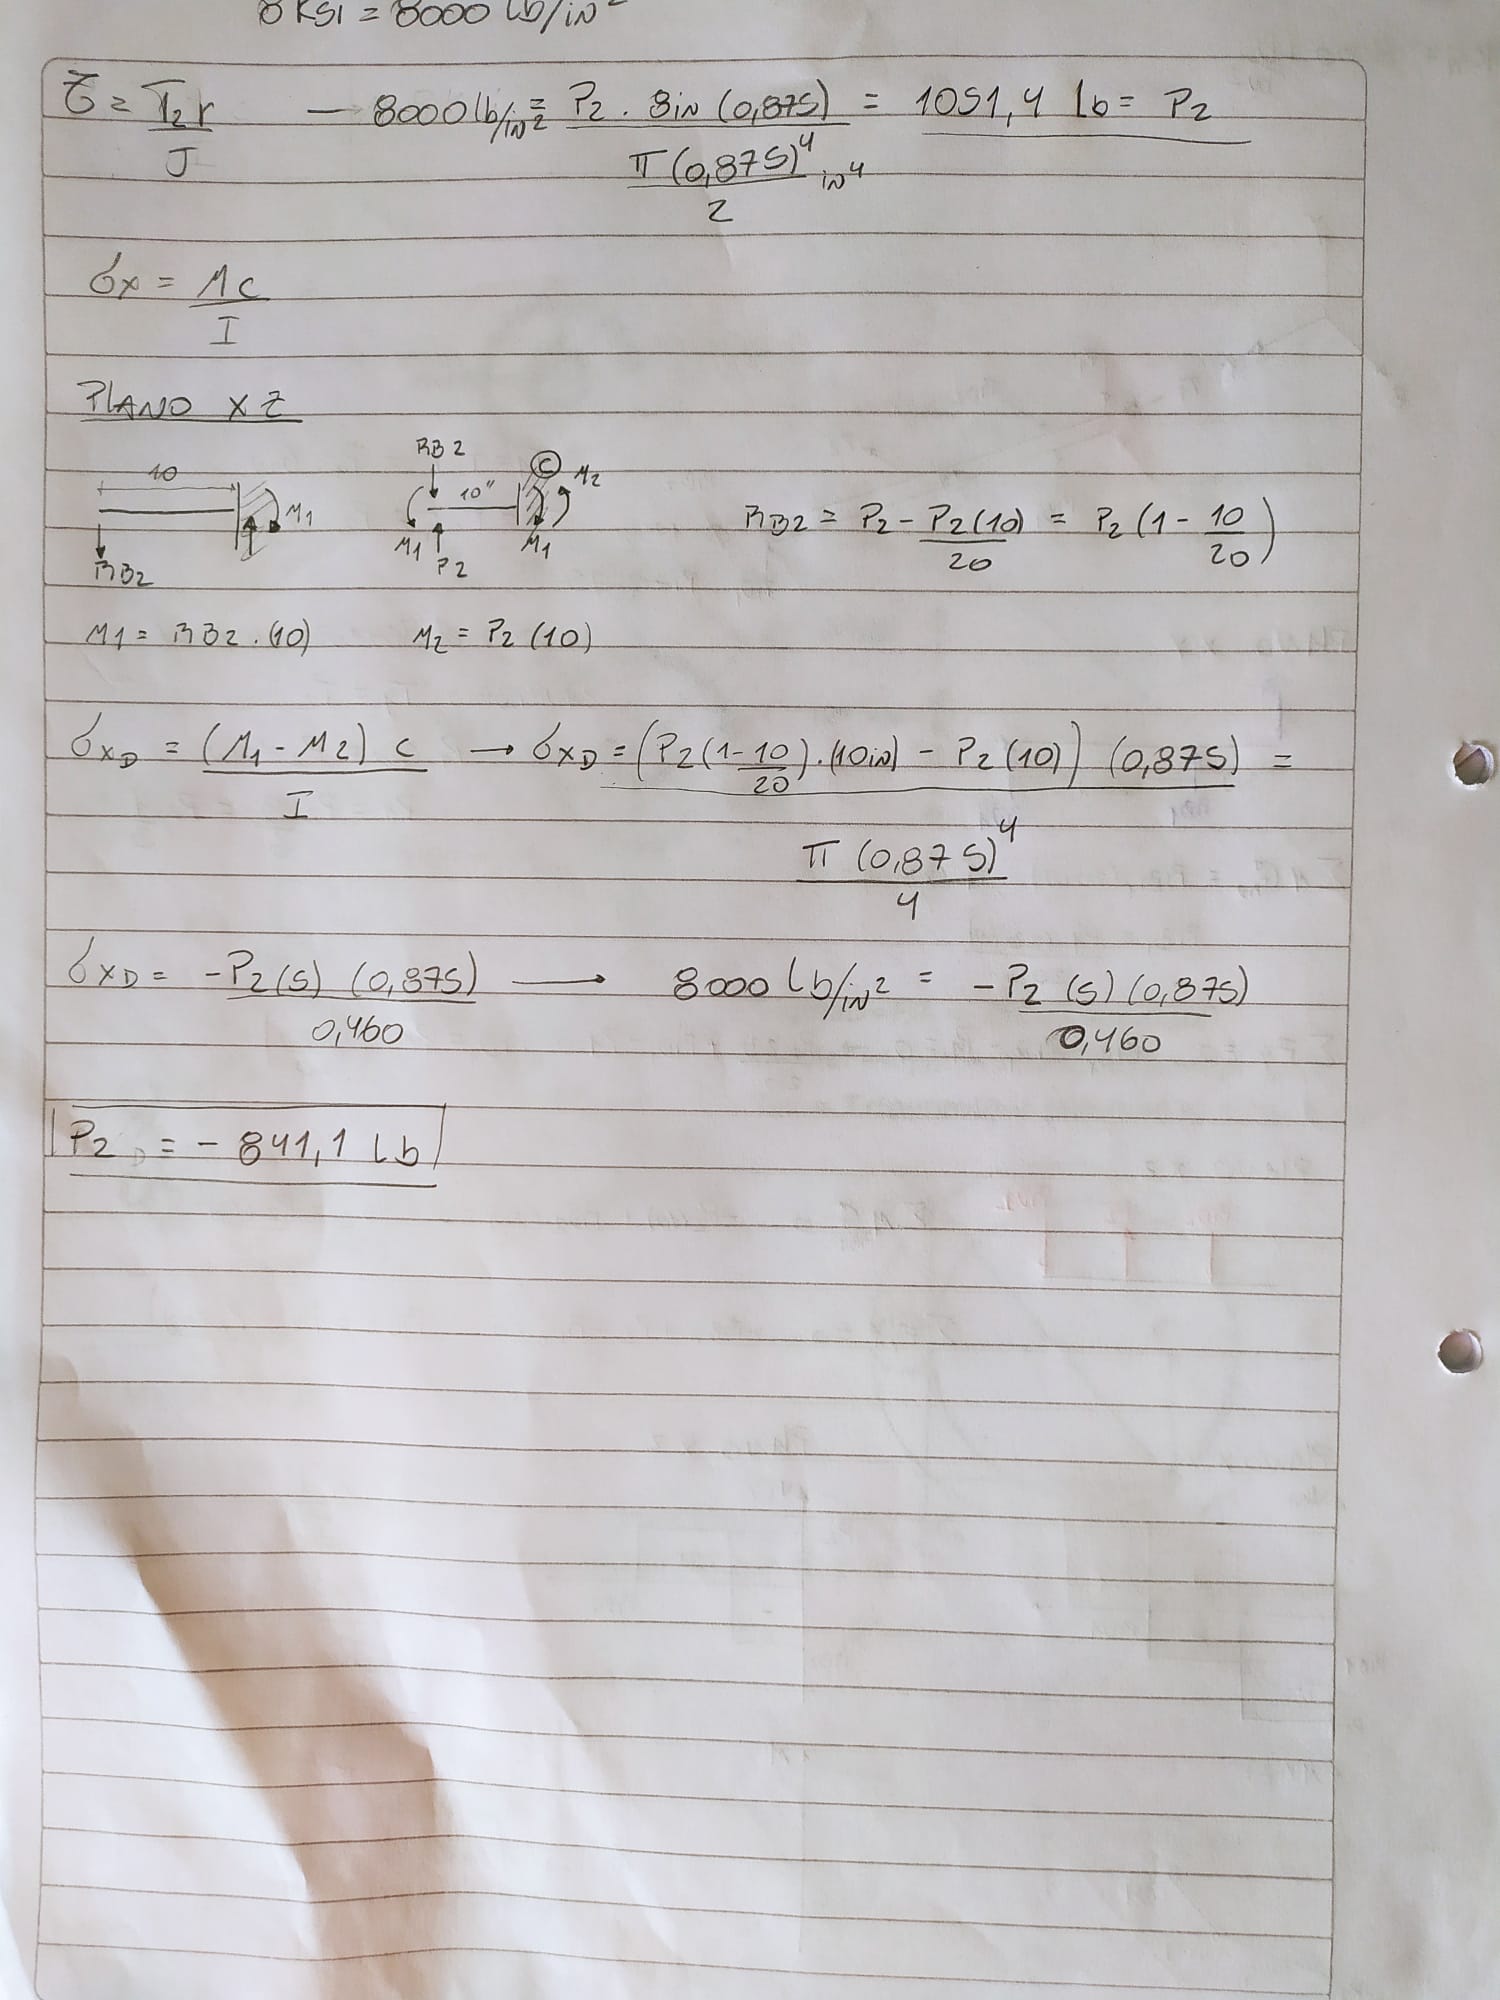 8 KSI = 8000 lb/in²
τ = T2 r / J — 8000 lb/in² = P2 . 8in (0,875) / (π (0,875)⁴ / 2) in⁴ = 1051,4 lb = P2
σx = Mc / I
PLANO XZ
10 M1 RB2
RB2 10" C M2 M1 P2 M1
RB2 = P2 - P2(10) / 20 = P2 (1 - 10/20)
M1 = RB2 . (10) M2 = P2 (10)
σxD = (M1 - M2) c / I → σxD = (P2 (1 - 10/20) . (10in) - P2 (10)) (0,875) / (π (0,875)⁴ / 4) =
σxD = -P2 (5) (0,875) / 0,460 → 8000 lb/in² = -P2 (5) (0,875) / 0,460
P2 = - 841,1 Lb